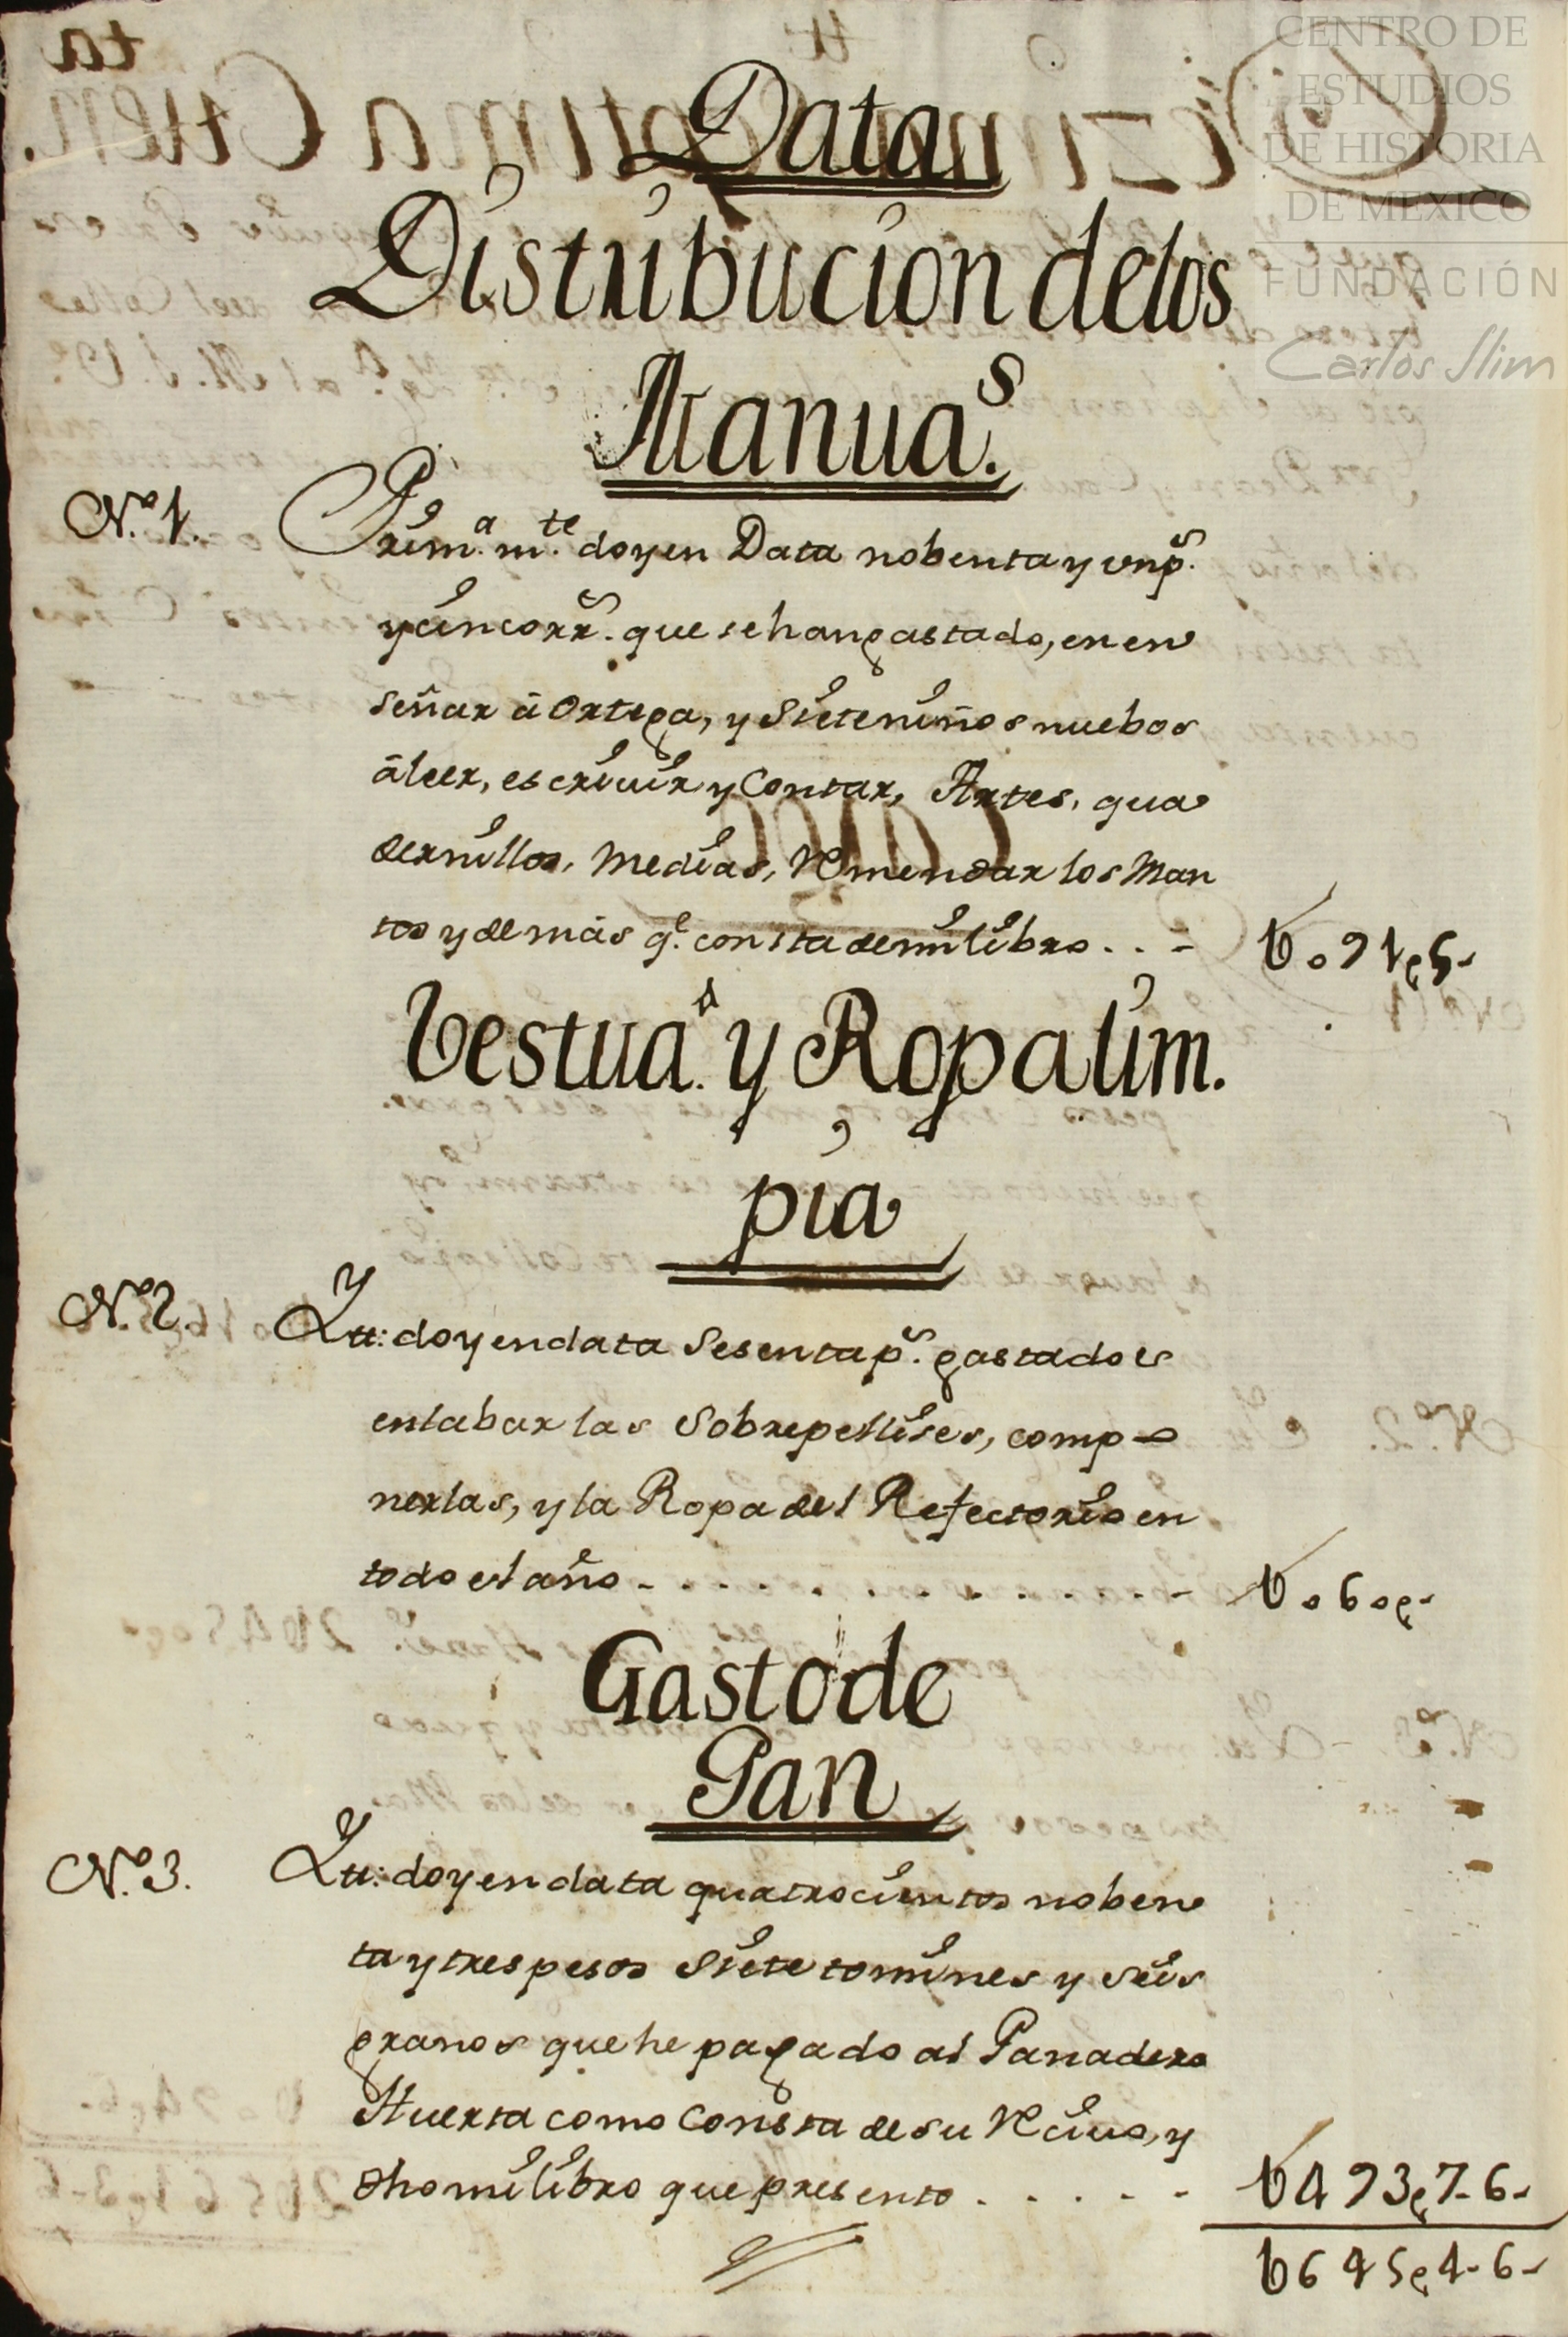 CENTRO DE
ESTUDIOS
DE HISTORIA
DE MEXICO
FUNDACIÓN
Carlos Slim
Data
Distribucion delos
Manua.s
N.o 1.
Prim.a m.te doy en Data nobenta y un p.s
y cinco rr.s que se han gastado, en en
señar â Ortega, y Siete niños nuebos
â leer, escriuir y Contar, Artes, qua
dernillos, Medias, Remendar los Man
tos y demâs q.e consta de mi libro . . -
V o 91 ç 5 -
Vestua.o y Ropa lim.
pia
N.o 2.
Ytt: doy en data Sesenta p.s gastados
en labar las Sobrepellises, compo
nerlas, y la Ropa del Refectorio en
todo el año - . . . . . . . . . -
V o 60 ç -
Gasto de
Pan
N.o 3.
Ytt: doy en data quatrocientos noben
ta y tres pesos Siete tomines y Seis
granos que he pagado al Panadero
Huerta como Consta de su Reciuo, y
dho mi libro que presento . . . . -
V 493 ç 7 - 6 -
V 645 ç 4 - 6 -